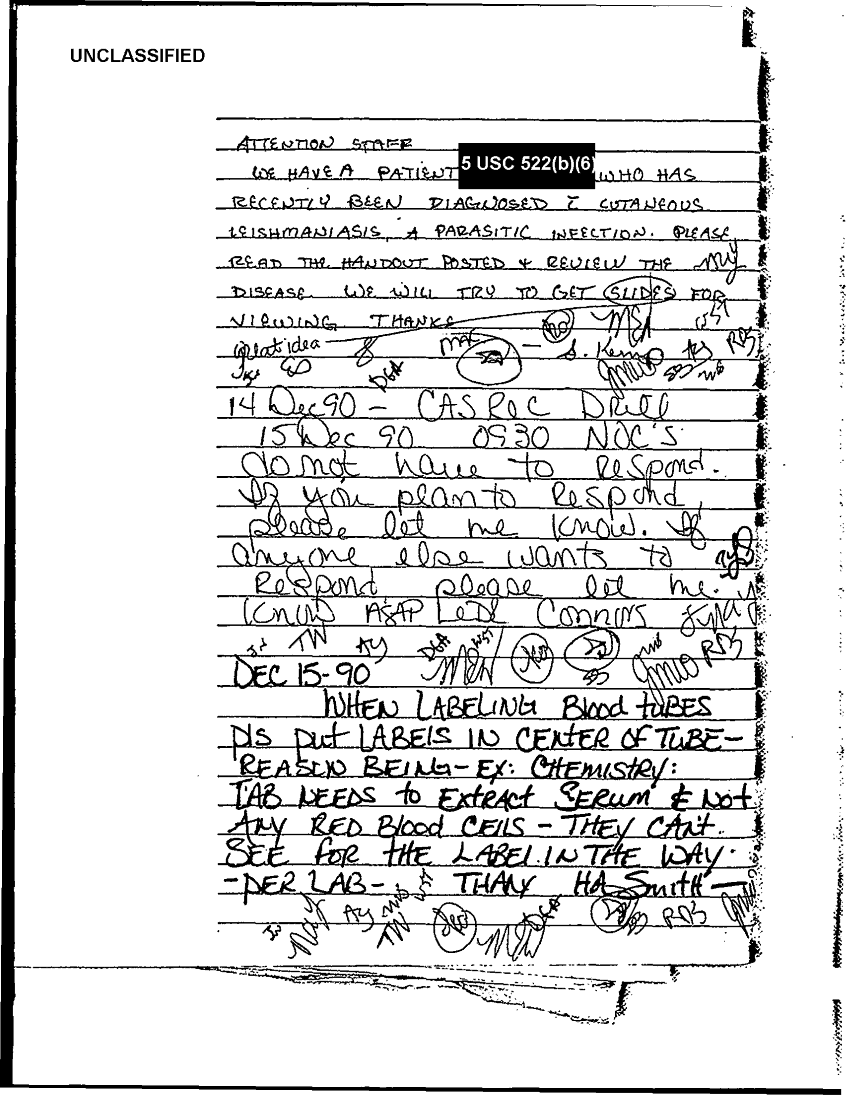 UNCLASSIFIED
ATTENTION STAFF
WE HAVE A PATIENT 5 USC 522(b)(6) WHO HAS
RECENTLY BEEN DIAGNOSED c̄ CUTANEOUS
LEISHMANIASIS, A PARASITIC INFECTION. PLEASE
READ THE HANDOUT POSTED & REVIEW THE
DISEASE. WE WILL TRY TO GET SLIDES FOR
VIEWING THANKS
great idea
MAC
— S. Kem
DGA
MEW
WST
RDS
AY
14 Dec 90 – CAS REC Drill
15 Dec 90 0930 NOC'S
do not have to respond.
If you plan to Respond,
please let me know. If
anyone else wants to
Respond please let me
know ASAP Ltjg Connors
TW AY DGA MEW WST RDS
DEC 15-90
WHEN LABELING Blood tUBES
pls put LABELS IN CENTER OF TUBE–
REASON BEING– EX: CHEMISTRY:
LAB NEEDS to EXtRACT SERUM & Not
ANY RED Blood CEllS – THEY CAN't
SEE FOR tHE LABEL IN THE WAY.
-PER LAB- THANX HA Smith –
AY TW WST MEW DGA RDS